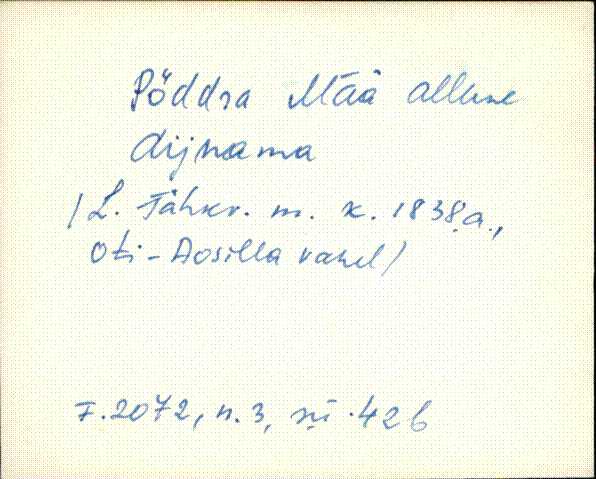 Pöddra Mää allune
dijnama
/L. Tähkv. m. k. 1838.a.,
Oti-Aosilla vahel/
F. 2072, n. 3, sü. 426